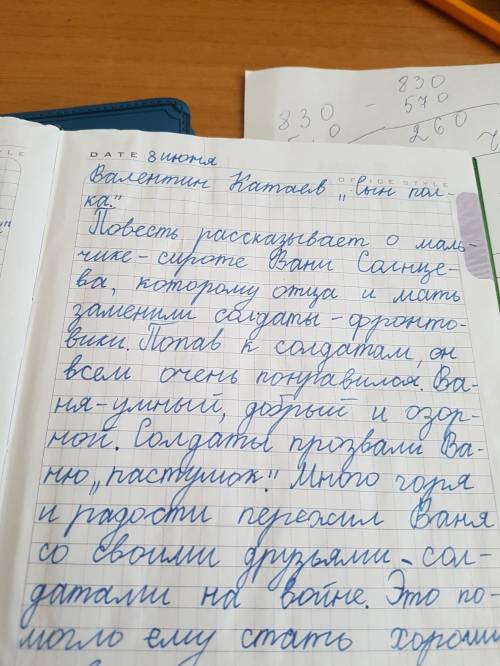 830
- 570
830
260
DATE 8 июня
OFFICE STYLE
Валентин Катаев „Сын пол-
ка".
Повесть рассказывает о маль-
чике-сироте Вани Солнце-
ва, которому отца и мать
заменили солдаты-фронто-
вики. Попав к солдатам, он
всем очень понравился. Ва-
ня-умный, добрый и озор-
ной. Солдаты прозвали Ва-
ню „пастушок". Много горя
и радости пережил Ваня
со своими друзьями-сол-
датами на войне. Это по-
могло ему стать хорошим